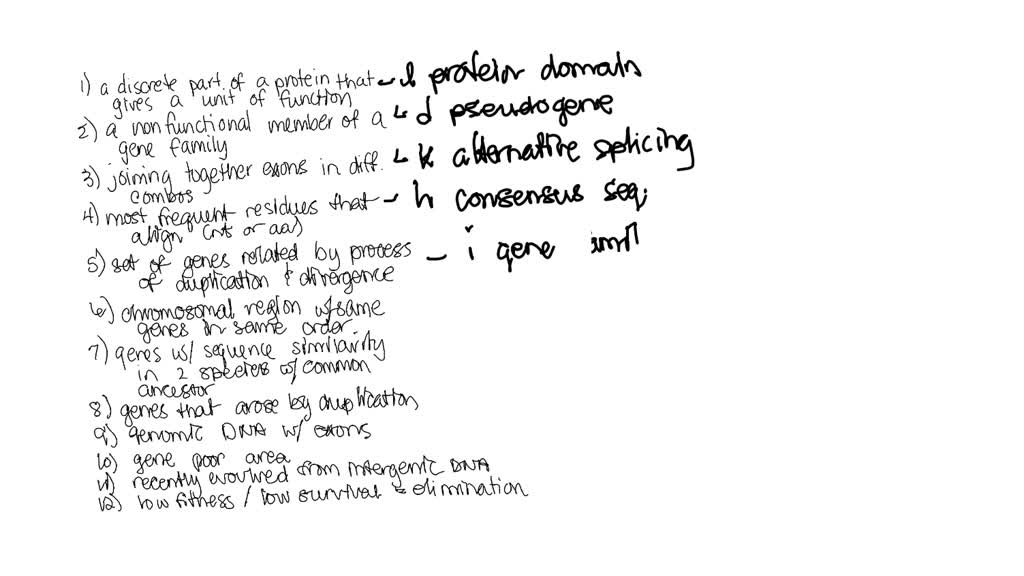 1) a discrete part of a protein that - l protein domain
gives a unit of function
2) a nonfunctional member of a - d pseudogene
gene family
3) joining together exons in diff. - k alternative splicing
combos
4) most frequent residues that - h consensus seq.
align (nts or aas)
5) set of genes related by process - i gene
of duplication & divergence
6) chromosomal region w/same
genes in same order
7) genes w/ sequence similarity
in 2 species w/ common
ancestor
8) genes that arose by duplication
9) genomic DNA w/ exons
10) gene poor area
11) recently evolved from intergenic DNA
12) low fitness / low survival = elimination